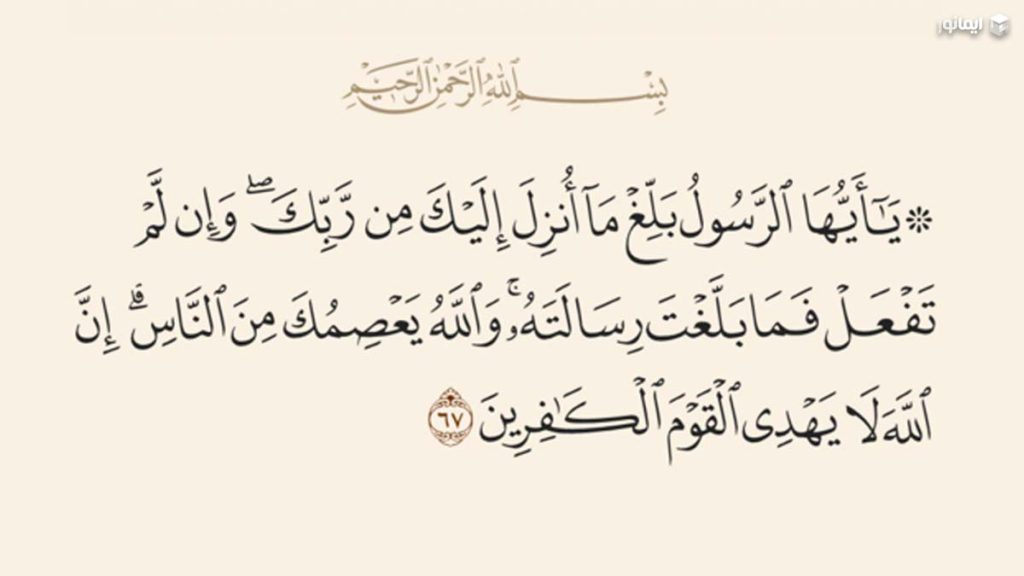 ایمانور
بِسْمِ ٱللَّهِ ٱلرَّحْمَٰنِ ٱلرَّحِيمِ
۞ يَـٰٓأَيُّهَا ٱلرَّسُولُ بَلِّغْ مَآ أُنزِلَ إِلَيْكَ مِن رَّبِّكَ ۖ وَإِن لَّمْ
تَفْعَلْ فَمَا بَلَّغْتَ رِسَالَتَهُۥ ۚ وَٱللَّهُ يَعْصِمُكَ مِنَ ٱلنَّاسِ ۗ إِنَّ
ٱللَّهَ لَا يَهْدِى ٱلْقَوْمَ ٱلْكَـٰفِرِينَ ٦٧